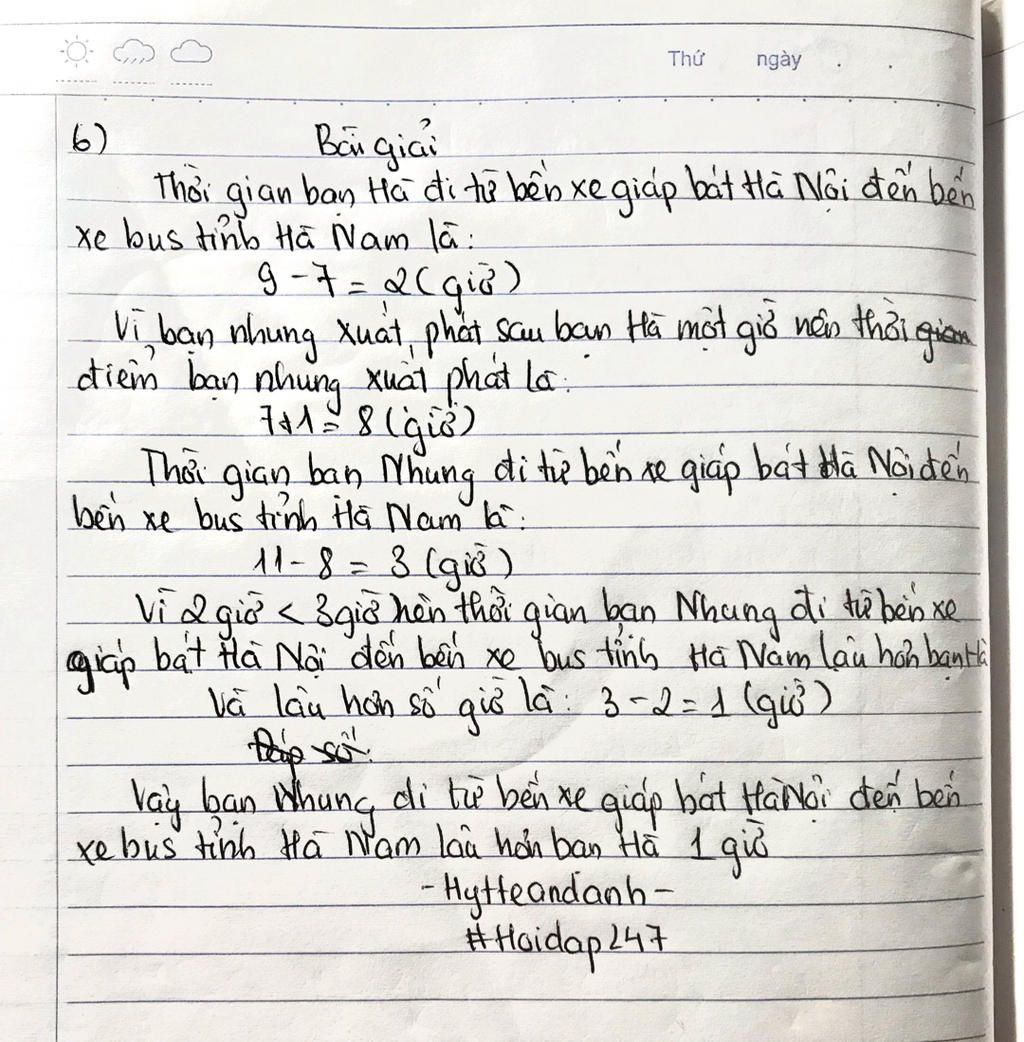 Thứ ngày . .
6) Bài giải
Thời gian bạn Hà đi từ bến xe giáp bát Hà Nội đến bến
xe bus tỉnh Hà Nam là:
9 - 7 = 2 (giờ)
Vì bạn nhung xuất phát sau bạn Hà một giờ nên thời gian
điểm bạn nhung xuất phát là:
7+1 = 8 (giờ)
Thời gian bạn Nhung đi từ bến xe giáp bát Hà Nội đến
bến xe bus tỉnh Hà Nam là:
11 - 8 = 3 (giờ)
Vì 2 giờ < 3 giờ nên thời gian bạn Nhung đi từ bến xe
giáp bát Hà Nội đến bến xe bus tỉnh Hà Nam lâu hơn bạn Hà
Và lâu hơn số giờ là: 3 - 2 = 1 (giờ)
Đáp số:
Vậy bạn Nhung đi từ bến xe giáp bát Hà Nội đến bến
xe bus tỉnh Hà Nam lâu hơn bạn Hà 1 giờ
- Hytteandanh -
#Hoidap247